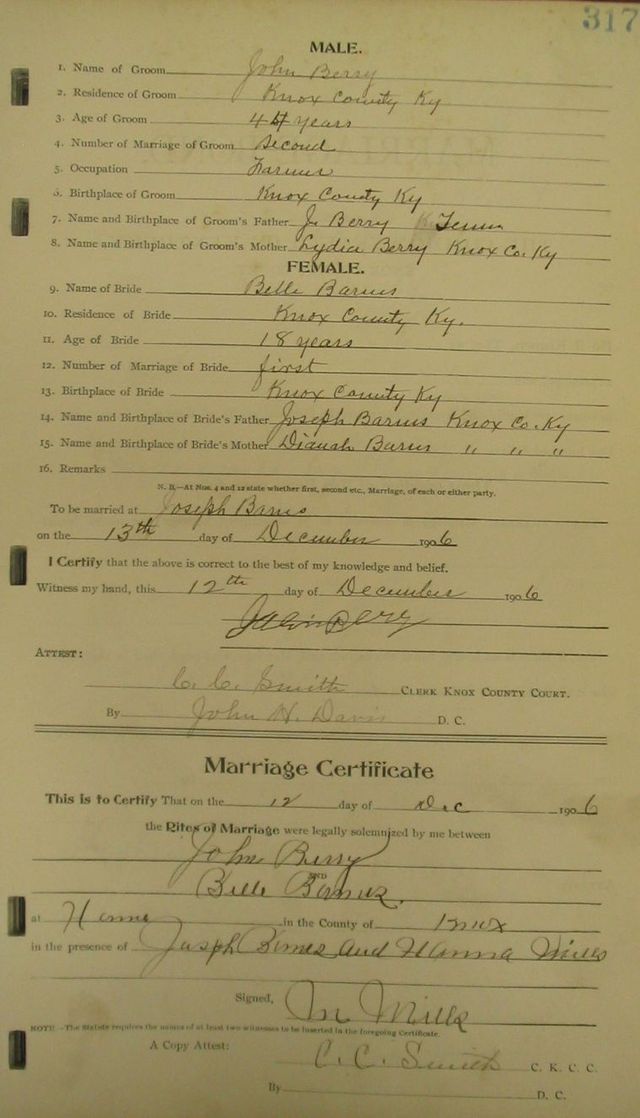 317
MALE.
1. Name of Groom John Berry
2. Residence of Groom Knox County Ky
3. Age of Groom 44 years
4. Number of Marriage of Groom Second
5. Occupation Farmer
6. Birthplace of Groom Knox County Ky
7. Name and Birthplace of Groom's Father J. Berry Tenn
8. Name and Birthplace of Groom's Mother Lydia Berry Knox Co. Ky
FEMALE.
9. Name of Bride Belle Barnes
10. Residence of Bride Knox County Ky.
11. Age of Bride 18 years
12. Number of Marriage of Bride first
13. Birthplace of Bride Knox County Ky
14. Name and Birthplace of Bride's Father Joseph Barnes Knox Co. Ky
15. Name and Birthplace of Bride's Mother Dianah Barnes " " "
16. Remarks
N. B.—At Nos. 4 and 12 state whether first, second etc., Marriage, of each or either party.
To be married at Joseph Barnes
on the 13th day of December 1906
I Certify that the above is correct to the best of my knowledge and belief.
Witness my hand, this 12th day of December 1906
ATTEST:
C. C. Smith CLERK KNOX COUNTY COURT.
By John H. Davis D. C.
Marriage Certificate
This is to Certify That on the 12 day of Dec 1906
the Rites of Marriage were legally solemnized by me between
John Berry
AND
Belle
at Home in the County of Knox
in the presence of Joseph and Hanna Mills
Signed, Mills
NOTE—The Statute requires the names of at least two witnesses to be inserted in the foregoing Certificate.
A Copy Attest: C. C. Smith C. K. C. C.
By D. C.